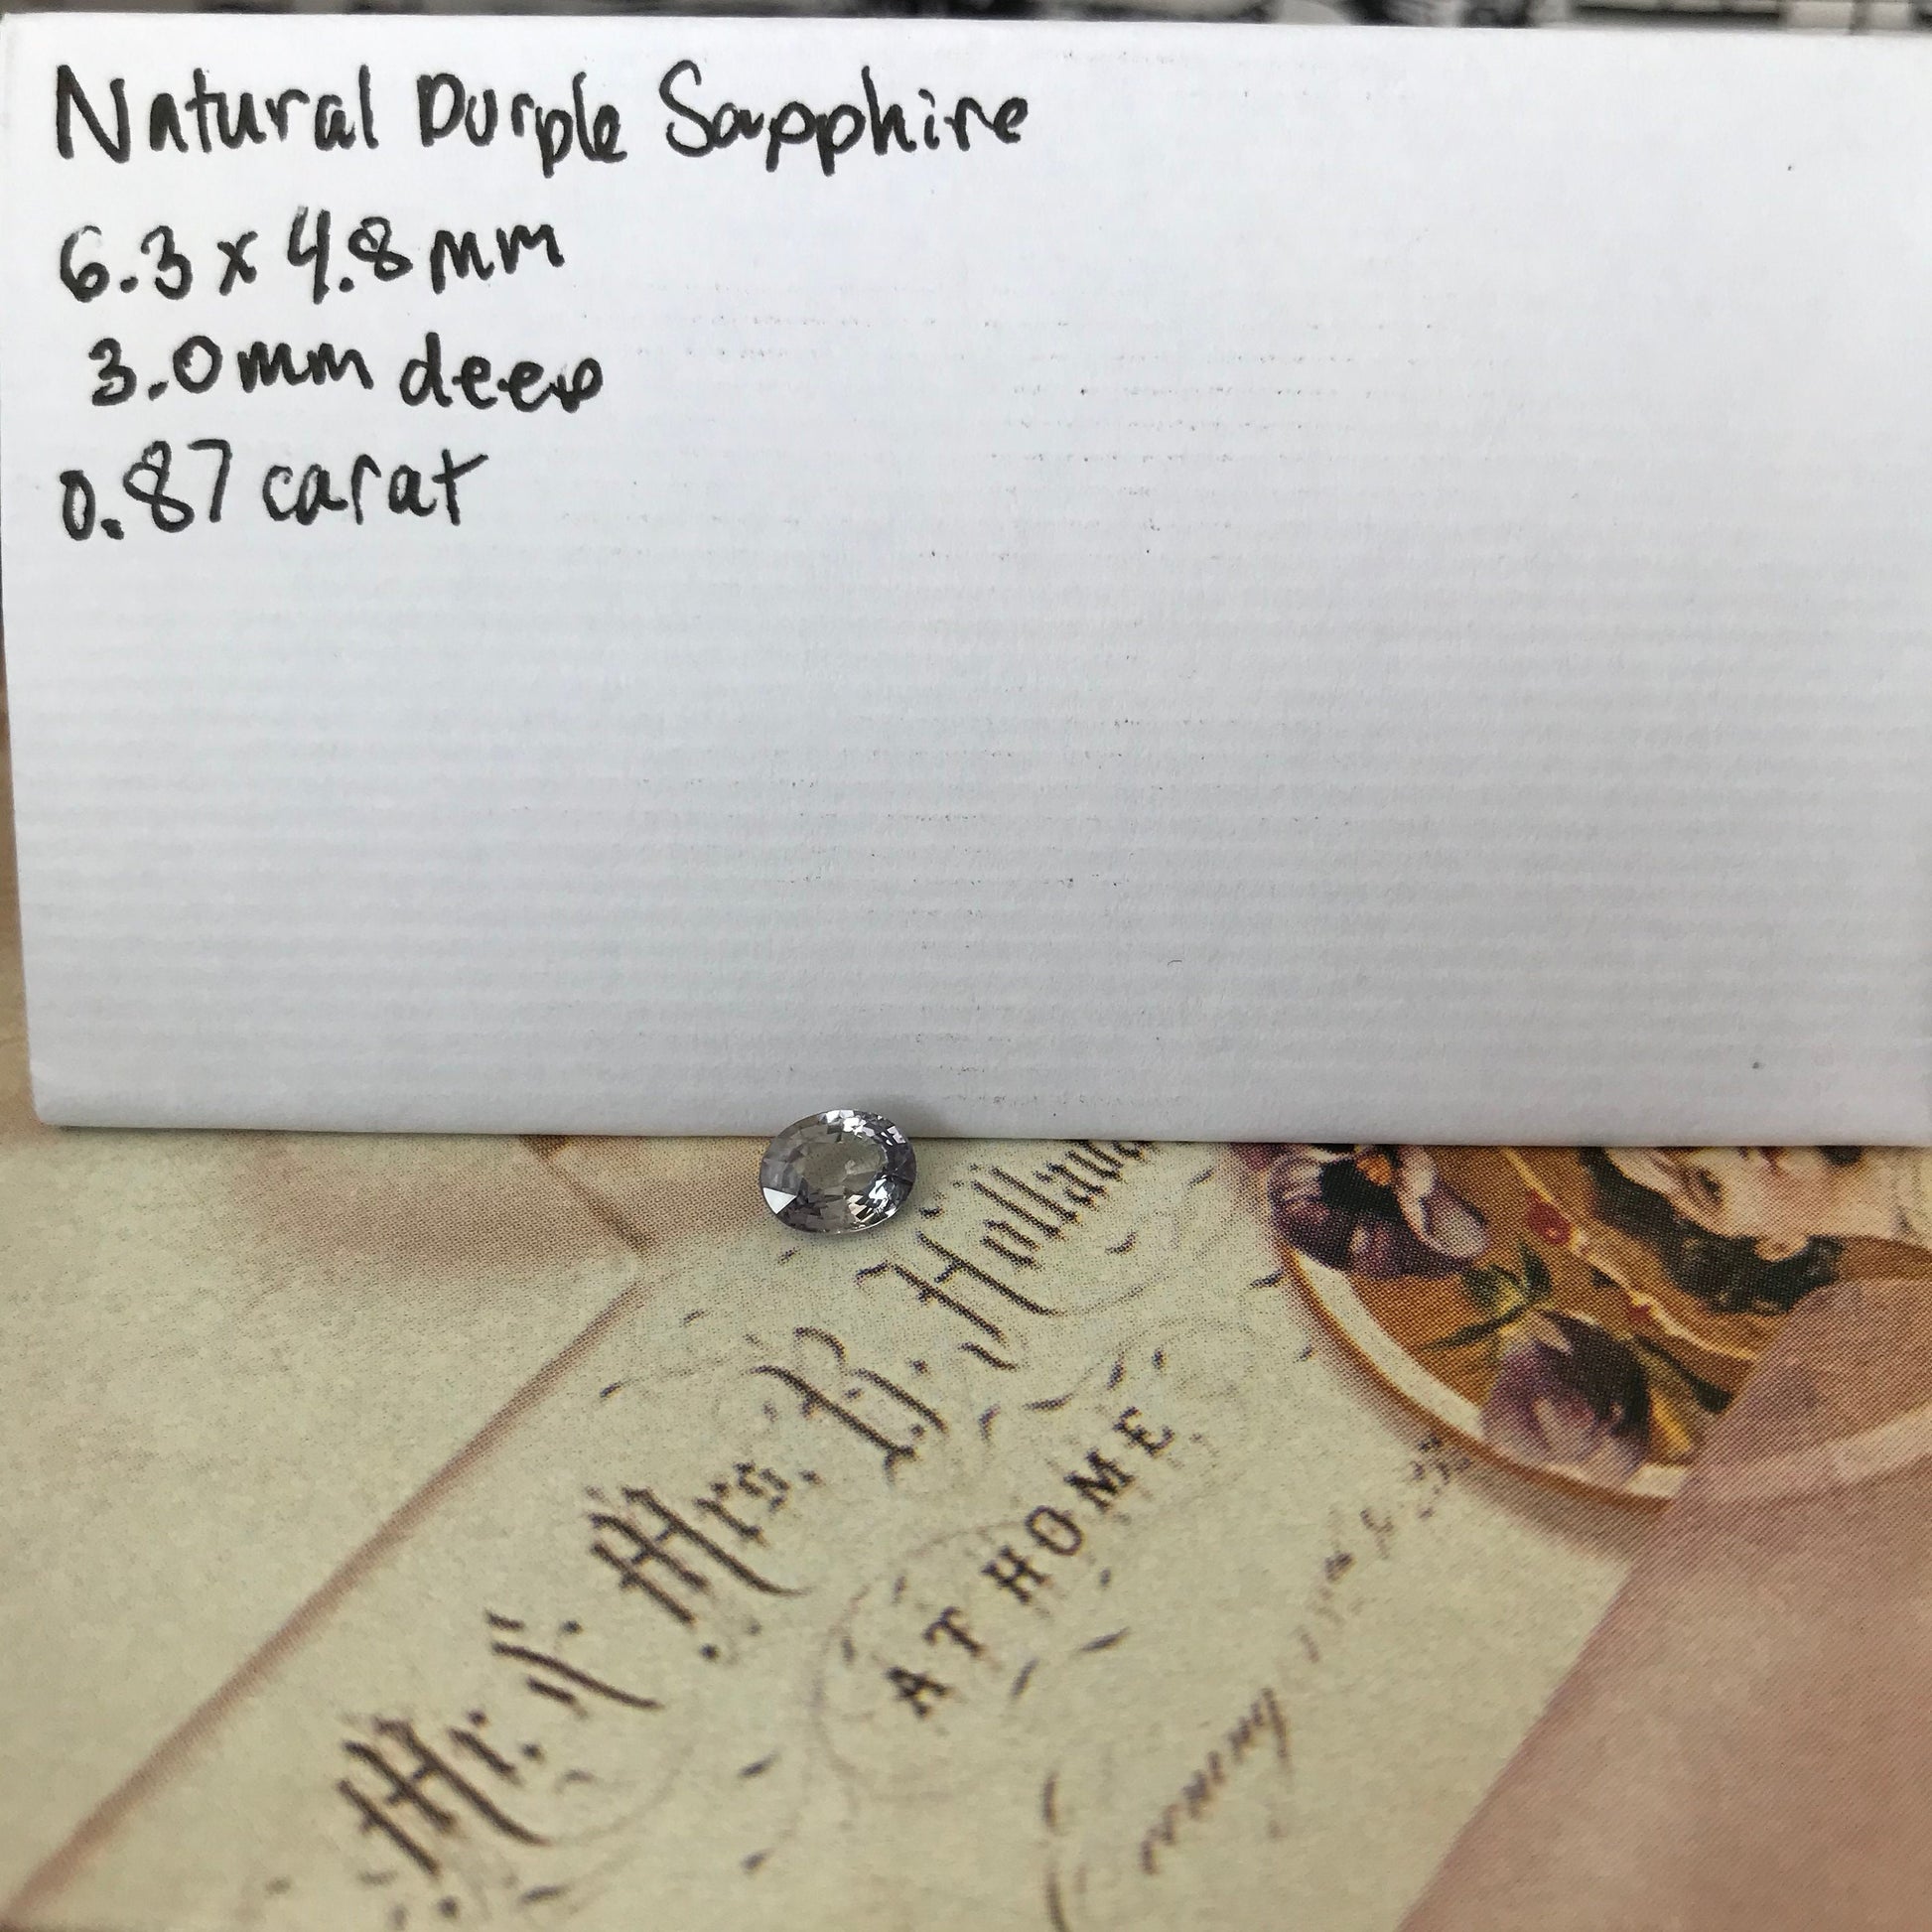 Natural Purple Sapphire
6.3 x 4.8 mm
3.0 mm deep
0.87 carat
Mr. & Mrs. B. Holland
AT HOME